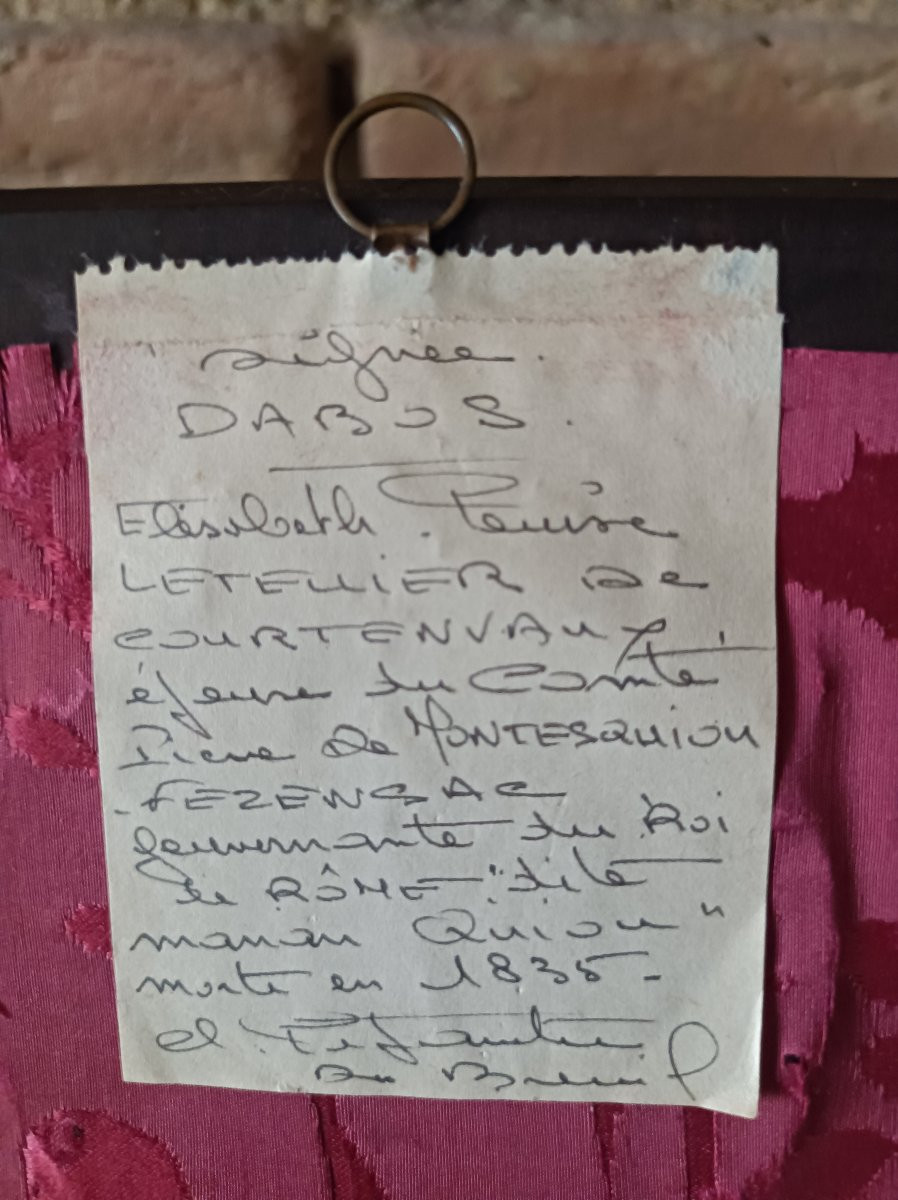 signée.
DABOS.
Elisabeth. Louise
LETELLIER de
COURTENVAUX
épouse du Comte
Pierre de MONTESQUIOU
-FEZENSAC
gouvernante du Roi
de RÔME "dite
maman Quiou"
morte en 1835-
et
du Breuil